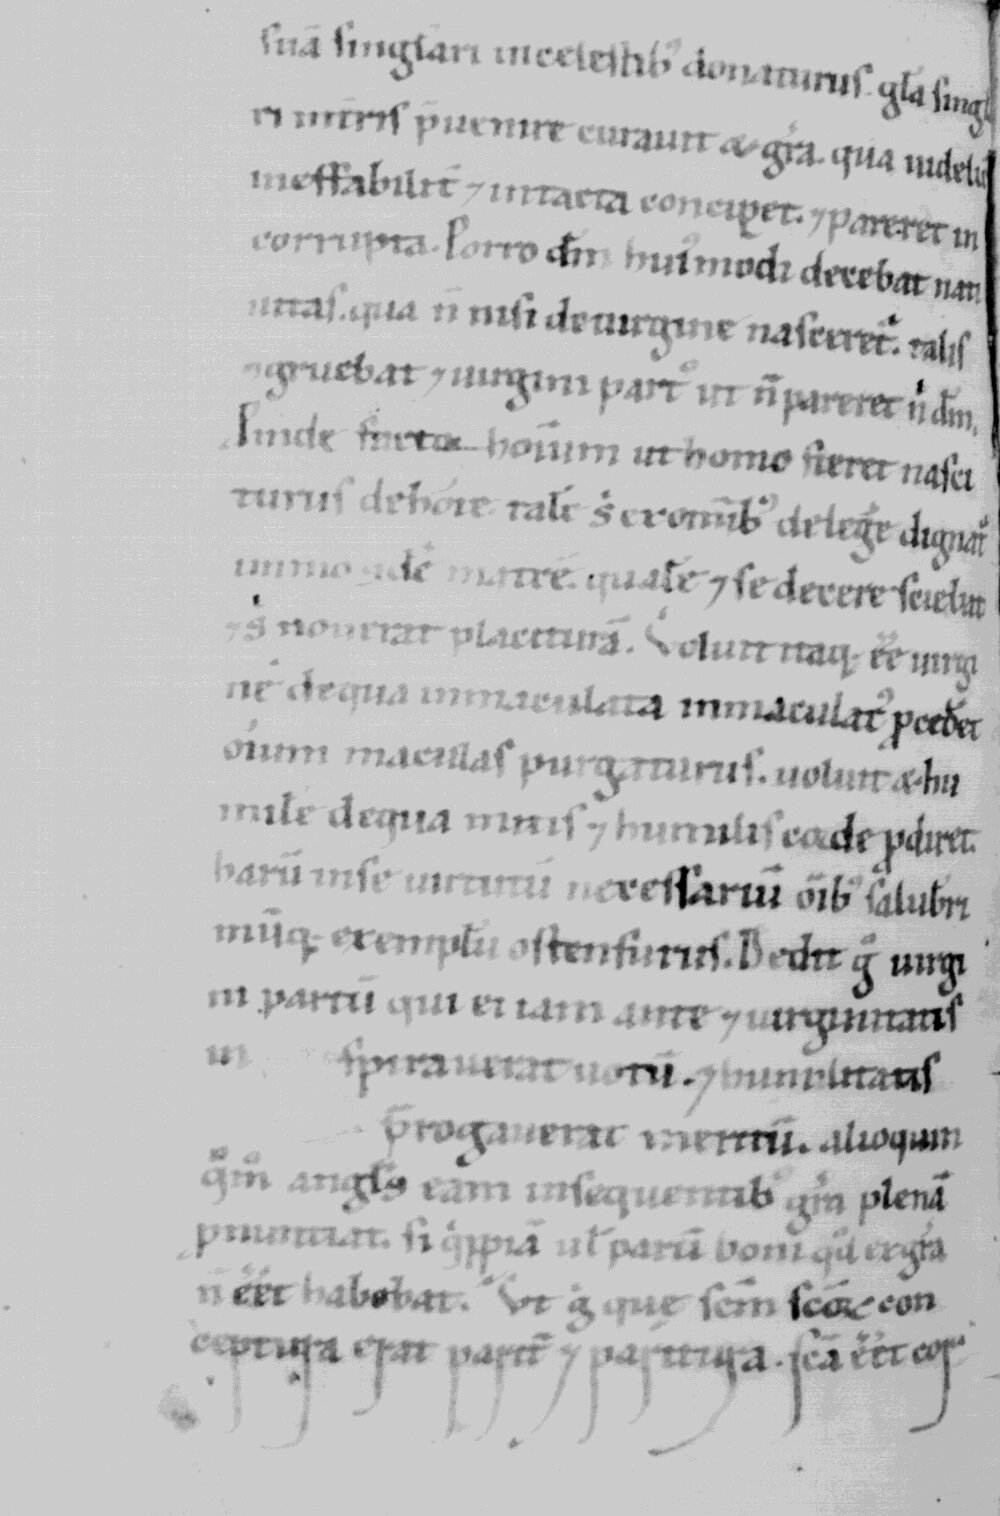 suā singłari in celestib⁹ donaturus. głā singł
ri meritis p̄uenire curauit & gr̄a. qua uidelic̄
ineffabilit̄ ⁊ intacta conciperet. ⁊ pareret in
corrupta. Porro dm̄ hui⁹modi decebat nati
uitas. qua n̄ nisi de uirgine nasceret᷑. talis
ꝯgruebat ⁊ uirgini part⁹ ut n̄ pareret n̄ dm̄.
Proinde factor hoīum ut homo fieret nasci
turus de hoīe talē s̄ ex omīb⁹ delegere dignat᷑
immo ꝯdē matrē. qualē ⁊ se decere sciebat
⁊ s̄ nouerat placiturā. Voluit itaq; eē̄ uirgi
nē de qua immaculata immaculat⁹ ꝓcederet
oīum maculas purgaturus. uoluit & hu
milē de qua mitis ⁊ humilis corde ꝓdiret.
harū in se uirtutū necessariū oīb⁹ saluberri
mūq; exemplū ostensurus. Dedit g̊ uirgi
ni partū qui ei iam ante ⁊ uirginitatis
in spirauerat uotū. ⁊ humilitatis
p̄rogauerat meritū. alioquin
q̊m̊ angł̄s eam in sequentib⁹ gr̄a plenā
pnuntiat. si q̇ppiā uł parū boni qd̄ ex gr̄a
n̄ eē̄t habebat. Vt g̊ que scm̄ scōꝝ con
ceptura erat parit̄ ⁊ paritura. scā eē̄t cor⁹